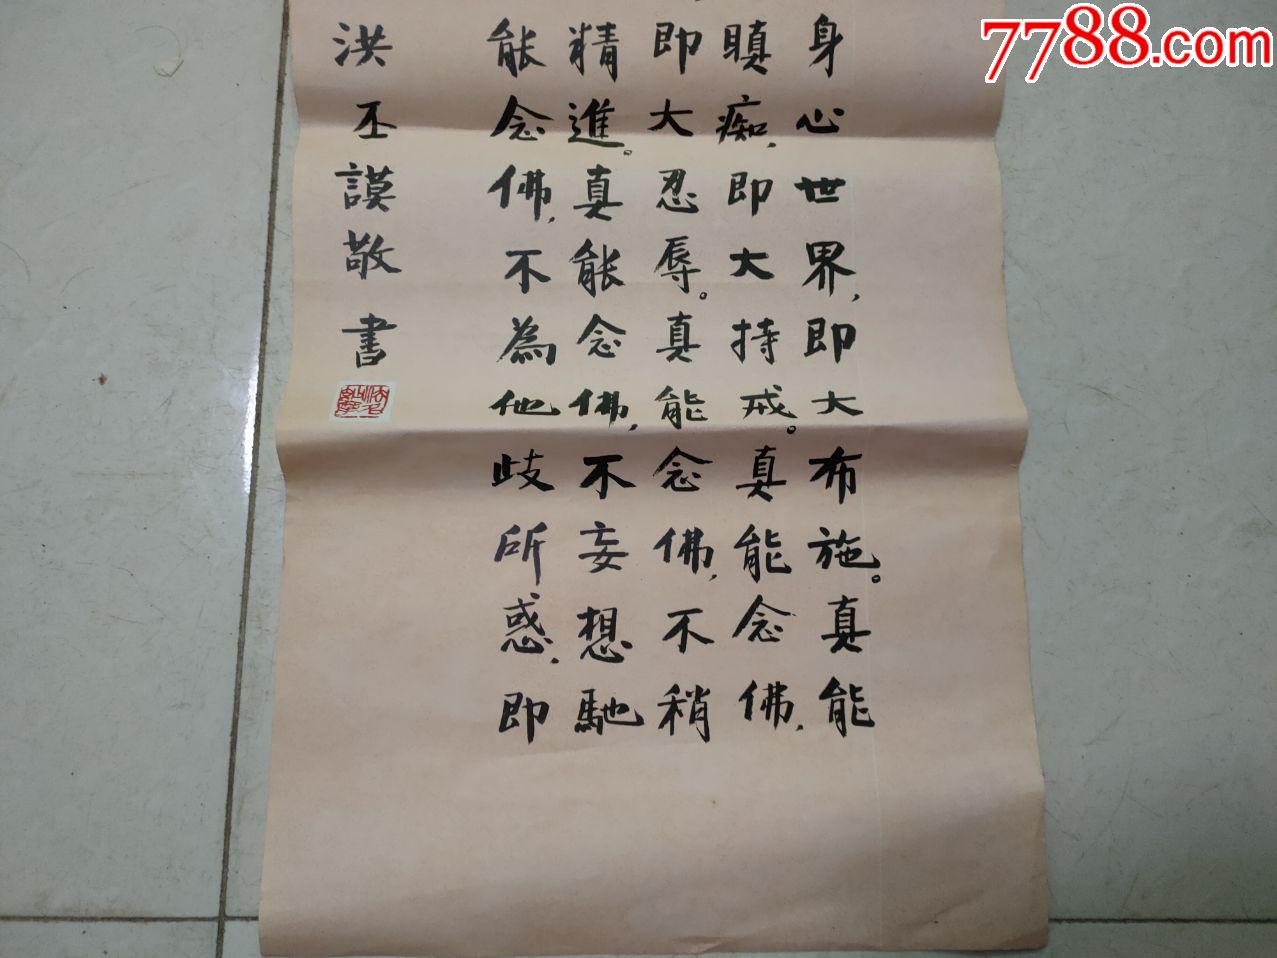 身心世界，即大布施。真能
瞋痴，即大持戒。真能念佛，
即大忍辱。真能念佛，不稍
精進。真能念佛，不妄想馳
能念佛，不為他歧所惑，即
洪丕謨敬書
7788.com